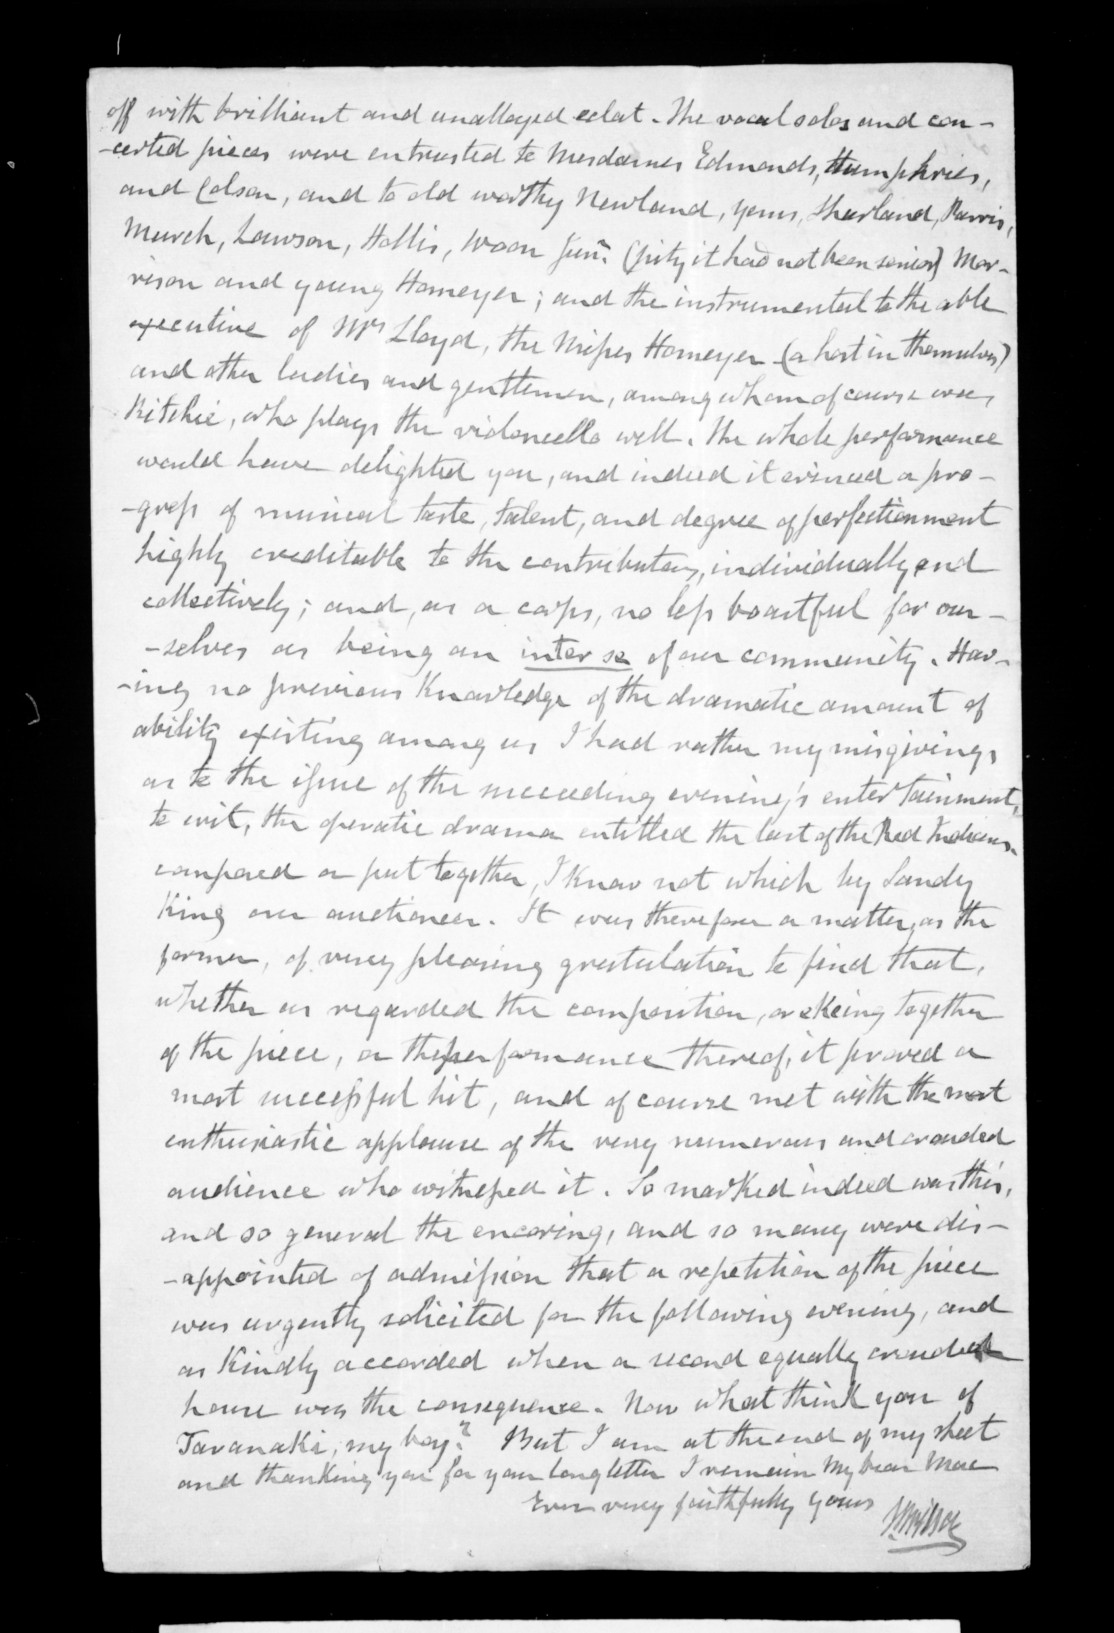 off with brilliant and unalloyed eclat. The vocal solos and con-
-certed pieces were entrusted to Mesdames Edmonds, Humphries,
and Colson, and to old worthy Newland, Yems, Sharland, Parris,
March, Lawson, Hollis, Woon Junr. (pity it had not been senior) Mor-
rison and young Homeyer; and the instrumental to the able
executive of Mrs Lloyd, the Misses Homeyer (a host in themselves)
and other ladies and gentlemen, among whom of course was
Ritchie, who plays the violoncello well. The whole performance
would have delighted you, and indeed it evinced a pro-
-gress of musical taste, talent, and degree of perfectionment
highly creditable to the contributors, individually and
collectively; and, as a corps, no less boastful for our-
-selves as being an inter se of our community. Hav-
-ing no previous Knowledge of the dramatic amount of
ability existing among us I had rather my misgivings
as to the issue of the succeeding evening's entertainment,
to wit, the operatic drama entitled the last of the Red Indians.
composed or put together, I Know not which by Sandy
King our auctioneer. It was therefore a matter, as the
former, of very pleasing gratulation to find that,
whether as regarded the composition, or eking together
of the piece, or the performance thereof, it proved a
most successful hit, and of course met with the most
enthusiastic applause of the very numerous and crowded
audience who witnessed it. So marked indeed was this,
and so general the encoring, and so many were dis-
-appointed of admission that a repetition of the piece
was urgently solicited for the following evening, and
as Kindly accorded when a second equally crowded
house was the consequence. Now what think you of
Taranaki, my boy? But I am at the end of my sheet
and thanking you for your long letter I remain My Dear Mac
Ever very faithfully yours